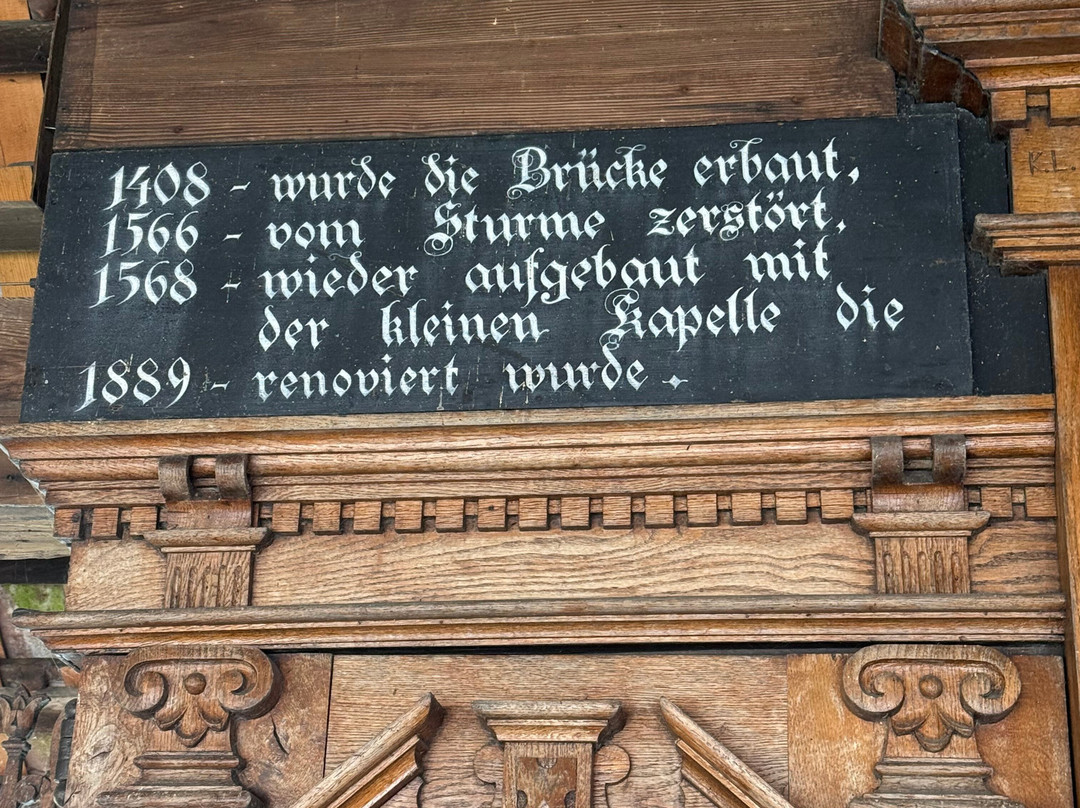 1408 - wurde die Brücke erbaut,
1566 - vom Sturme zerstört,
1568 - wieder aufgebaut mit
der kleinen Kapelle die
1889 - renoviert wurde.
K.L.